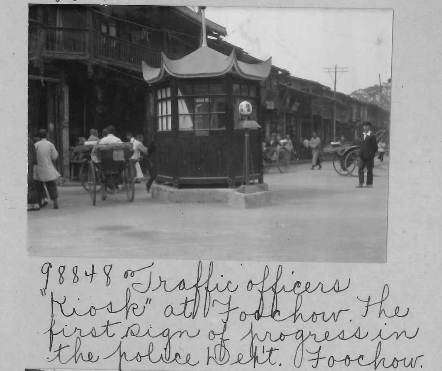 98848 - Traffic officers
"Kiosk" at Foochow. The
first sign of progress in
the police Dept. Foochow.